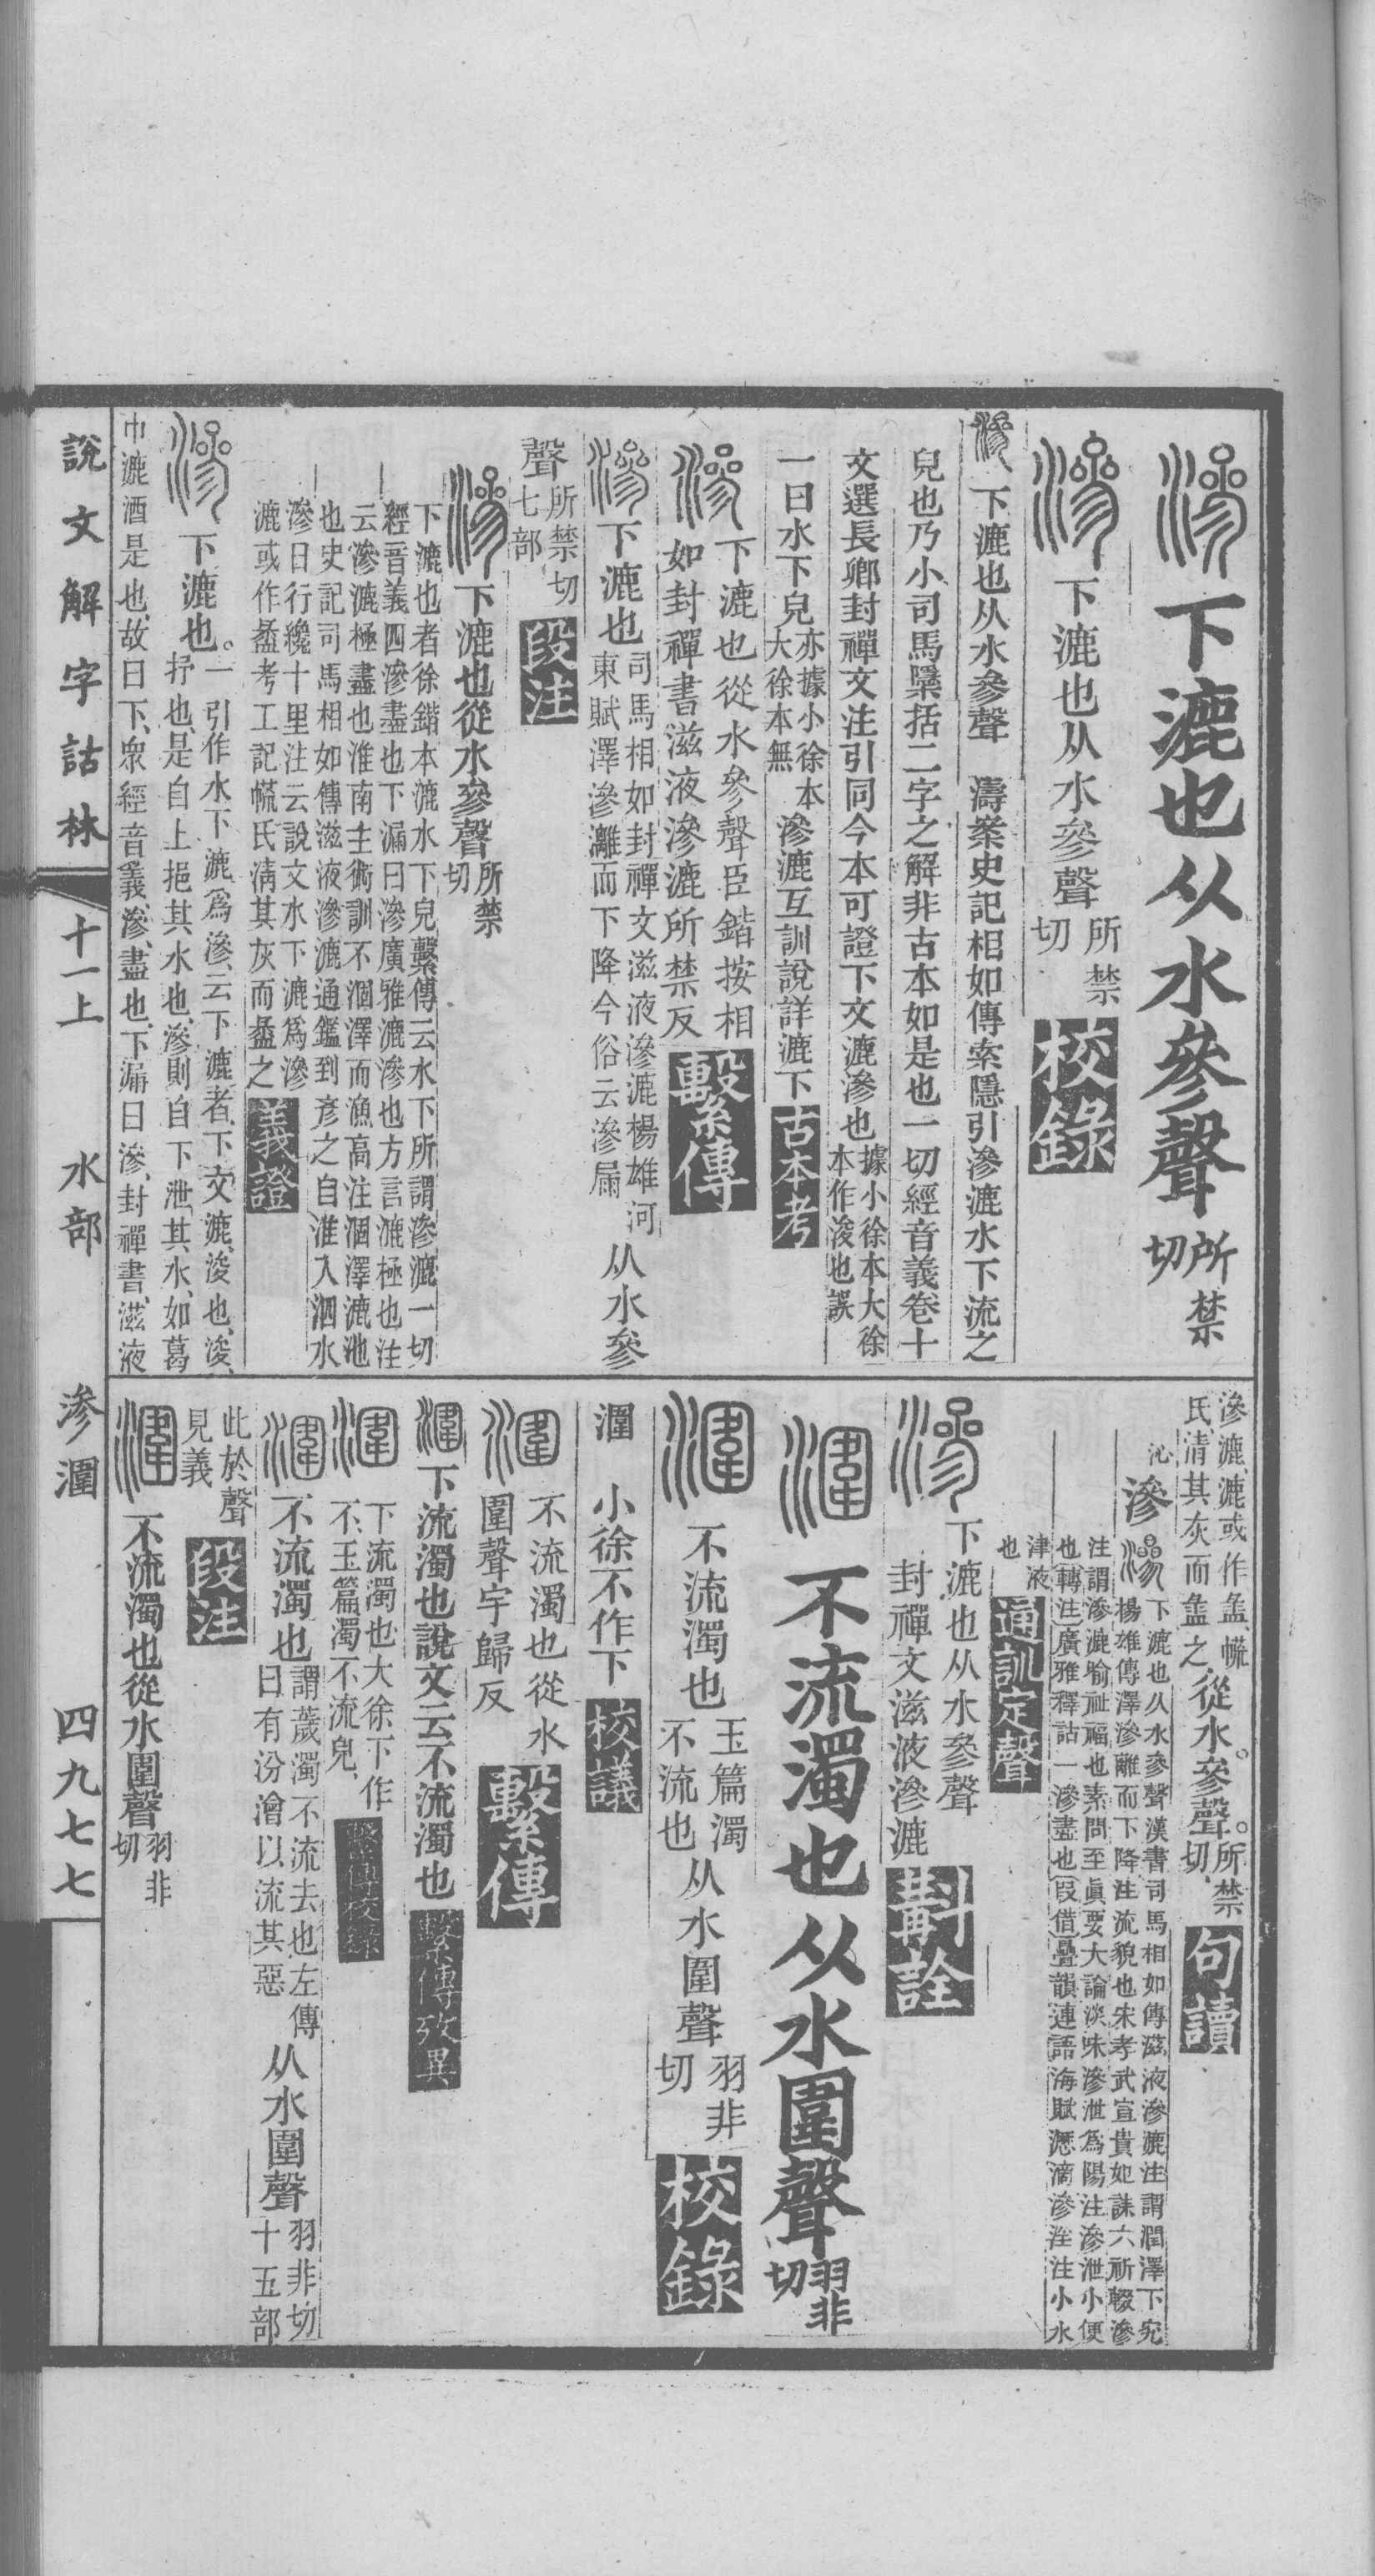 滲 下漉也从水參聲所禁切
滲 下漉也从水參聲所禁切 校錄
滲 下漉也从水參聲 濤案史記相如傳索隱引滲漉水下流之
皃也乃小司馬檃括二字之解非古本如是也一切經音義卷十
文選長卿封禪文注引同今本可證下文漉滲也據小徐本大徐本作浚也誤
一曰水下皃亦據小徐本大徐本無 滲漉互訓說詳漉下 古本考
滲 下漉也從水參聲臣鍇按相
如封禪書滋液滲漉所禁反 繫傳
滲 下漉也司馬相如封禪文滋液滲漉楊雄河東賦澤滲灕而下降今俗云滲屚 从水參
聲所禁切七部 段注
滲 下漉也從水參聲所禁切
下漉也者徐鍇本漉水下皃繫傳云水下所謂滲漉一切
經音義四滲盡也下漏曰滲廣雅漉滲也方言漉極也注
云滲漉極盡也淮南主術訓不涸澤而漁高注涸澤漉池
也史記司馬相如傳滋液滲漉通鑑到彥之自淮入泗水
滲日行纔十里注云說文水下漉爲滲
漉或作盝考工記㡛氏淸其灰而盝之 義證
滲 下漉也。一引作水下漉爲滲、云下漉者、下文漉、浚也、浚、
抒也、是自上挹其水也、滲則自下泄其水、如葛
巾漉酒是也、故曰下、衆經音義、滲、盡也、下漏曰滲、封禪書、滋液
說文解字詁林 十一上 水部 滲 潿 四九七七
滲漉、漉或作盝、㡛
氏、清其灰而盝之、從水。參聲。所禁切、 句讀
沁 滲 下漉也从水參聲漢書司馬相如傳滋液滲漉注謂潤澤下究
楊雄傳澤滲離而下降注流貌也宋孝武宣貴妃誄六祈輟滲
注謂滲漉喻祉福也素問至眞要大論淡味滲泄爲陽注滲泄小便
也轉注廣雅釋詁一滲盡也叚借疊韻連語海賦瀝滴滲淫注小水
津液也 通訓定聲
滲 下漉也从水參聲
封禪文滋液滲漉 斠詮
潿 不流濁也从水圍聲羽非切
潿 不流濁也玉篇濁不流也从水圍聲羽非切 校錄
潿 小徐不作下 校議
潿 不流濁也從水
圍聲宇歸反 繫傳
潿 下流濁也說文云不流濁也 繫傳攷異
潿 下流濁也大徐下作
不、玉篇濁不流皃、 繫傳校錄
潿 不流濁也謂薉濁不流去也左傳曰有汾澮以流其惡 从水圍聲羽非切十五部
此於聲見義 段注
潿 不流濁也從水圍聲羽非切